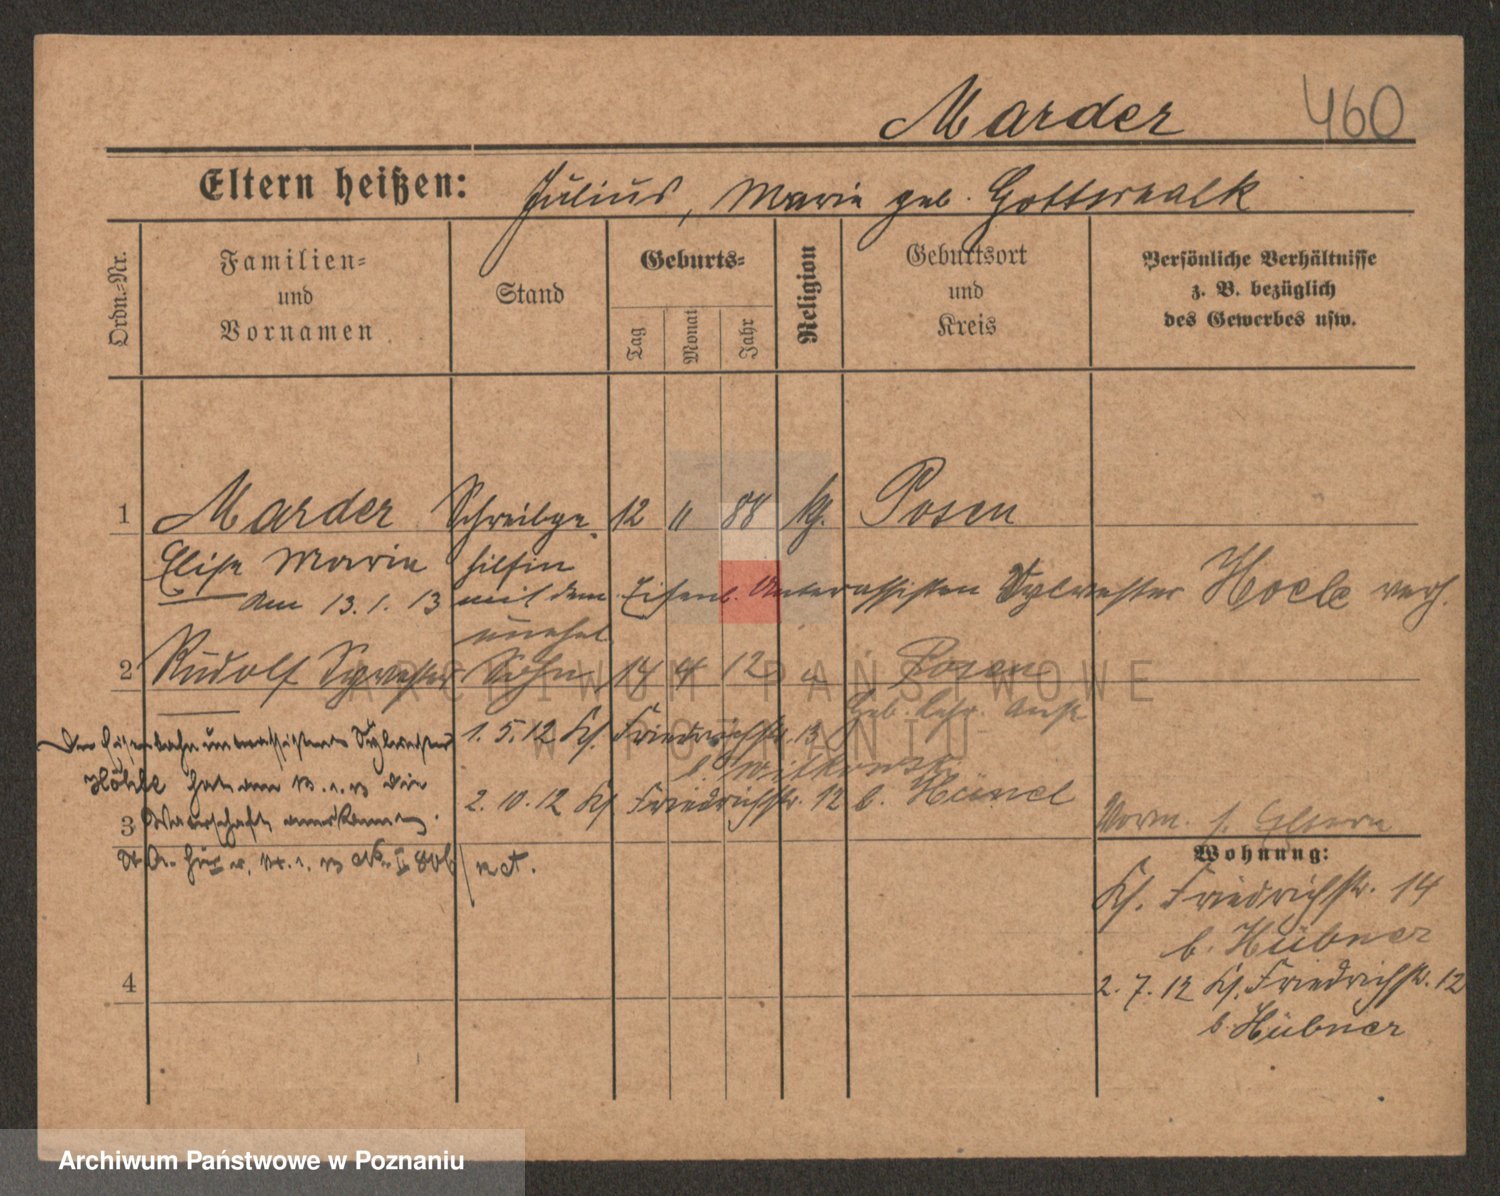 Marder 460
Eltern heißen: Julius, Marie geb. Gottwalk
Ordn.-Nr.
Familien-
und
Vornamen
Stand
Geburts-
Tag
Monat
Jahr
Religion
Geburtsort
und
Kreis
Persönliche Verhältnisse
z. B. bezüglich
des Gewerbes usw.
1 Marder Schreibge 12 11 88 kg. Posen
Elise Marie hilfin
am 13.1.13 mit dem Eisenb. Unterassisten Sylvester Hoele verh.
unehel
2 Rudolf Sohn 14 4 12 Posen
ARCHIWUM PAŃSTWOWE
W POZNANIU
Geb. Lehr. Anst
1.5.12 Ks. Friedrichstr. 13
2.10.12 Ks Friedrichstr. 12 b. Hünel
Der Eisenbahnunterassistent Sylvester
hat am 13.1.13 die
3 Vaterschaft anerkannt.
not.
Vorm. s. Eltern
Wohnung:
Ks. Friedrichstr. 14
b. Hübner
2.7.12 Ks. Friedrichstr. 12
b. Hübner
4
Archiwum Państwowe w Poznaniu